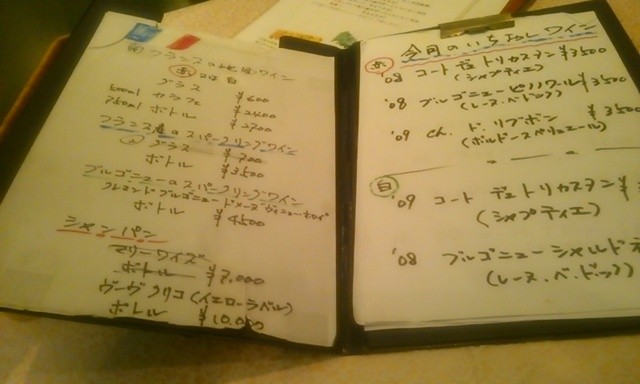 フランスの地酒ワイン
赤 又は 白
グラス ¥600
500ml カラフェ ¥2400
750ml ボトル ¥2700
フランス産のスパークリングワイン
グラス ¥700
ボトル ¥3500
ブルゴニューのスパークリングワイン
クレマンド ブルゴニュー ドメーヌ
ボトル ¥4500
シャンパン
マリーワイズ
ボトル ¥7.000
ヴーヴクリコ(イエローラベル)
ボトル ¥10.000
今月のいちおしワイン
赤
'08 コート デュ トリカスタン ¥3500
(シャプティエ)
'08 ブルゴニューピノノワール ¥3500
(レーヌ.ペドック)
'09 ch. ド. リブボン ¥3500
(ボルドースペリュエール)
白
'09 コート デュ トリカスタン ¥
(シャプティエ)
'08 ブルゴニュー シャルドネ
(レーヌ.ペ.ドック)